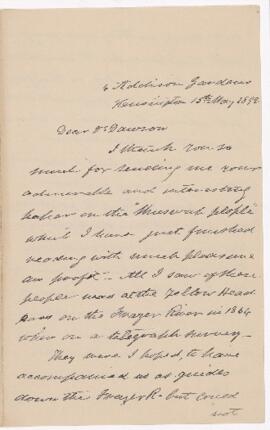 4 Addison Gardens
Kensington 15th May 1892
Dear Dr Dawson
I thank you so
much for sending me your
admirable and interesting
paper on the "Shuswap people"
which I have just finished
reading with much pleasure
and profit - All I saw of these
people was at the Yellow Head
pass on the Frazer River in 1864
when on a telegraph survey -
They were I hoped, to have
accompanied us as guides
down the Frazer R. but could
not